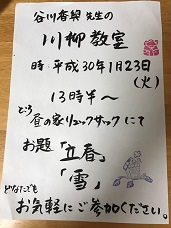 谷川香梨 先生の
川柳教室
時:平成30年1月23日
(火)
13時半〜
ところ
昼の家リュックサックにて
お題「立春」
「雪」
どなたでも
お気軽にご参加ください。